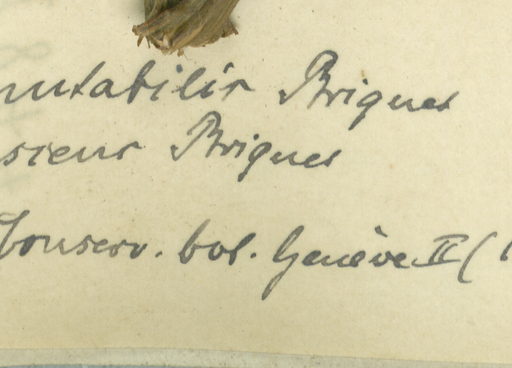 mutabilis Briquet
scens Briquet
Conserv. bot. Genève II (1